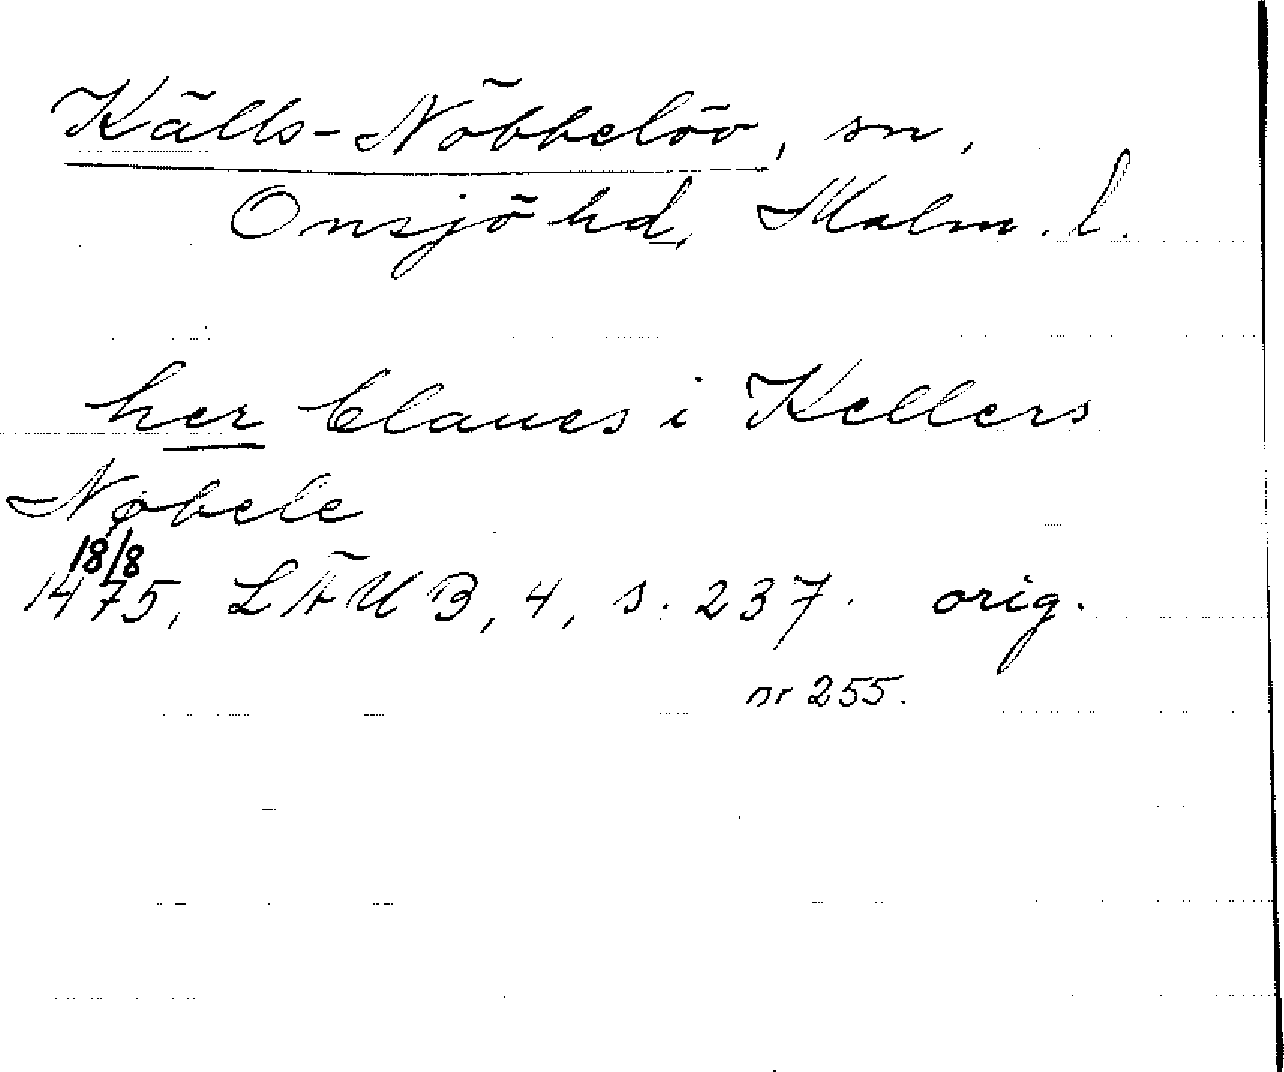 Källs-Nöbbelöv, sn,
Onsjö hd, Malm. l.
her Claues i Kellers
Nøbele
18/8
1475, LÄUB, 4, s. 237. orig.
nr 255.